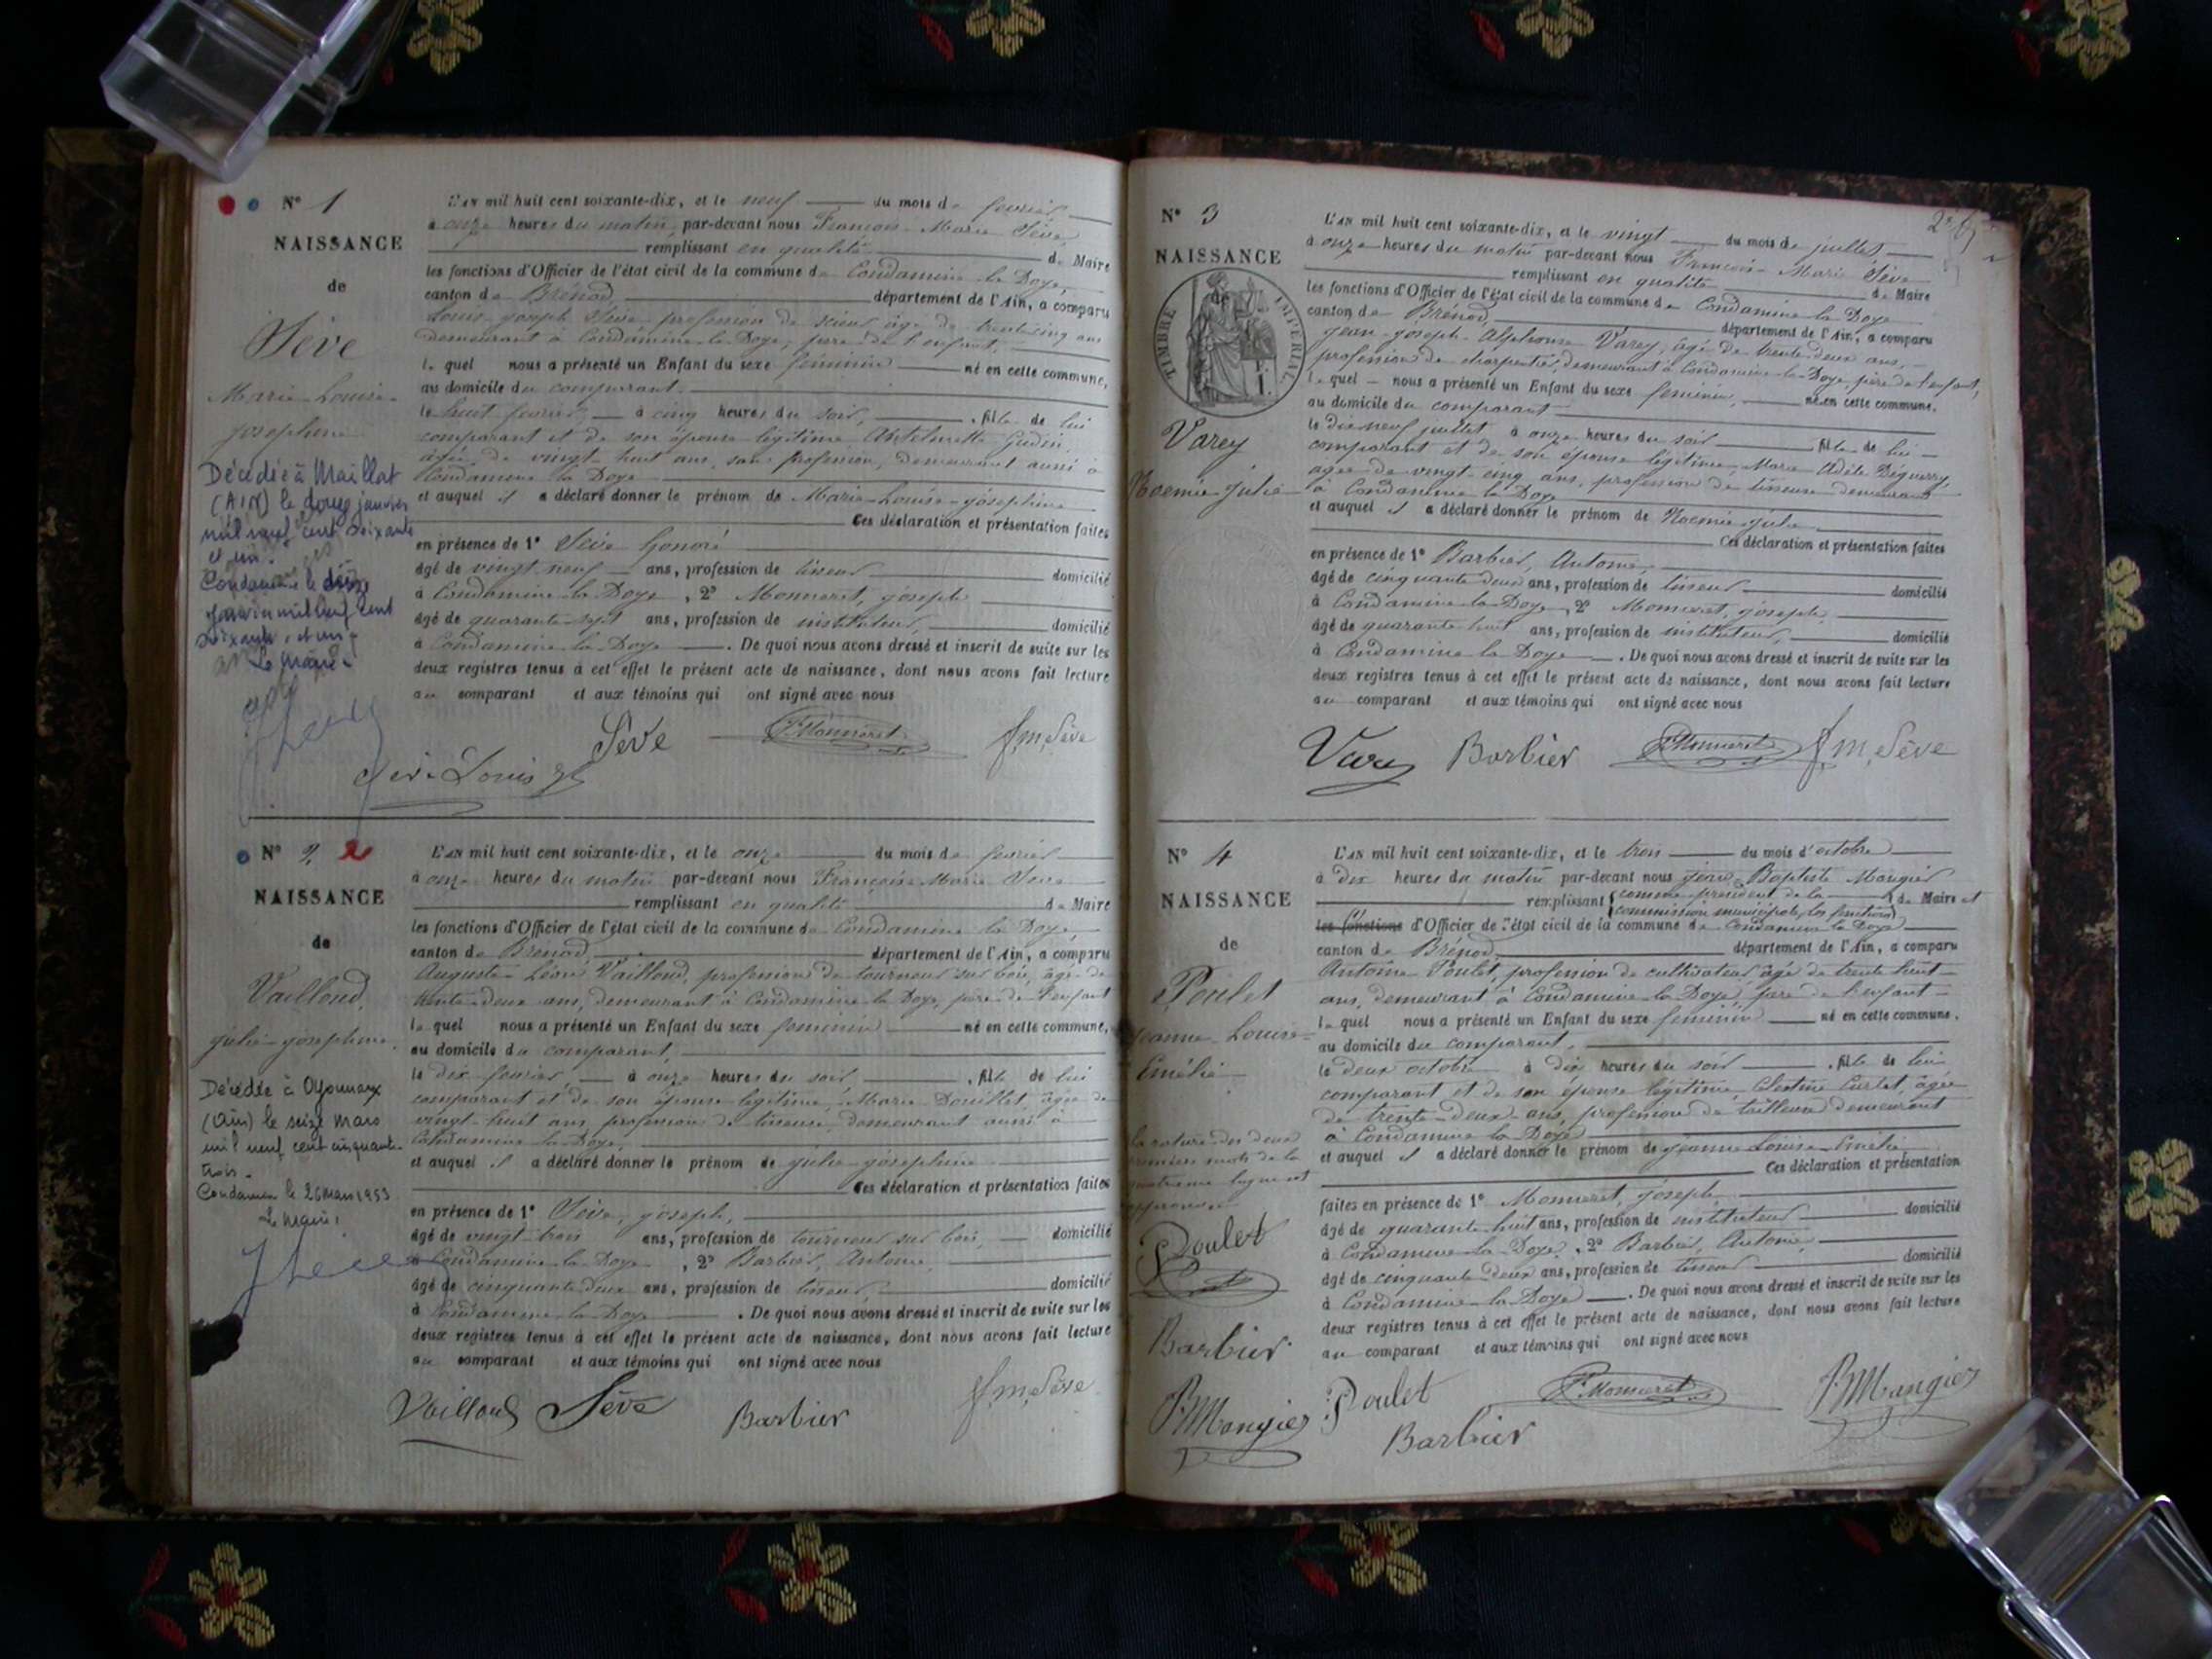 N° 1
NAISSANCE
de
Sève
Marie-Louise-
Joséphine
Décédée à Maillat
(AIN) le douze janvier
mil neuf cent soixante
et un.
Condamine le
janvier mil neuf cent
soixante et un
Le Maire
L'AN mil huit cent soixante-dix, et le neuf du mois de février,
à onze heures du matin, par-devant nous François-Marie Sève,
remplissant en qualité de Maire
les fonctions d'Officier de l'état civil de la commune de Condamine-la-Doye,
canton de Brénod, département de l'Ain, a comparu
Louis-Joseph Sève profession de scieur âgé de trente-cinq ans
demeurant à Condamine-la-Doye, père de l'enfant,
lequel nous a présenté un Enfant du sexe féminin né en cette commune,
au domicile du comparant,
le huit février, à cinq heures du soir, fille de lui
comparant et de son épouse légitime Anthelmette
âgée de vingt-huit ans, sans profession, demeurant aussi à
Condamine-la-Doye
et auquel il a déclaré donner le prénom de Marie-Louise-Joséphine
Ces déclaration et présentation faites
en présence de 1° Sève Honoré
âgé de vingt neuf ans, profession de tisseur domicilié
à Condamine-la-Doye, 2° Monneret, Joseph
âgé de quarante-sept ans, profession de instituteur, domicilié
à Condamine-la-Doye. De quoi nous avons dressé et inscrit de suite sur les
deux registres tenus à cet effet le présent acte de naissance, dont nous avons fait lecture
au comparant et aux témoins qui ont signé avec nous
Sève Monneret f. m. Sève
Sève Louis
N° 2 2
NAISSANCE
de
Vailloud,
Julie-Joséphine.
Décédée à Oyonnax
(Ain) le seize mars
mil neuf cent cinquante-
trois.
Condamine le 26 mars 1953
Le Maire,
L'AN mil huit cent soixante-dix, et le onze du mois de février
à onze heures du matin par-devant nous François-Marie Sève
remplissant en qualité de Maire
les fonctions d'Officier de l'état civil de la commune de Condamine-la-Doye,
canton de Brénod, département de l'Ain, a comparu
Auguste-Léon Vailloud, profession de tourneur sur bois, âgé de
trente-deux ans, demeurant à Condamine-la-Doye, père de l'enfant
lequel nous a présenté un Enfant du sexe féminin né en cette commune,
au domicile du comparant,
le dix février, à onze heures du soir, fille de lui
comparant et de son épouse légitime, Marie Douillet âgée de
vingt-huit ans profession de tisseuse, demeurant aussi à
Condamine-la-Doye,
et auquel il a déclaré donner le prénom de Julie-Joséphine
Ces déclaration et présentation faites
en présence de 1° Sève, Joseph,
âgé de vingt-trois ans, profession de tourneur sur bois, domicilié
à Condamine-la-Doye, 2° Barbier, Antoine,
âgé de cinquante-deux ans, profession de tisseur, domicilié
à Condamine-la-Doye. De quoi nous avons dressé et inscrit de suite sur les
deux registres tenus à cet effet le présent acte de naissance, dont nous avons fait lecture
au comparant et aux témoins qui ont signé avec nous
Vailloud Sève Barbier f. m. Sève
N° 3
NAISSANCE
TIMBRE IMPERIAL
Varey
Noémie-Julie
L'AN mil huit cent soixante-dix, et le vingt du mois de juillet,
à onze heures du matin par-devant nous François-Marie Sève
remplissant en qualité de Maire
les fonctions d'Officier de l'état civil de la commune de Condamine-la-Doye
canton de Brénod, département de l'Ain, a comparu
Jean-Joseph-Alphonse Varey, âgé de trente-deux ans,
profession de charpentier, demeurant à Condamine-la-Doye, père de l'enfant,
lequel nous a présenté un Enfant du sexe féminin, né en cette commune.
au domicile du comparant
le dix-neuf juillet à onze heures du soir fille de lui
comparant et de son épouse légitime, Marie-Adèle
âgée de vingt-cinq ans, profession de tisseuse demeurant
à Condamine-la-Doye
et auquel il a déclaré donner le prénom de Noémie-Julie
Ces déclaration et présentation faites
en présence de 1° Barbier, Antoine,
âgé de cinquante-deux ans, profession de tisseur domicilié
à Condamine-la-Doye, 2° Monneret, Joseph,
âgé de quarante-huit ans, profession de instituteur, domicilié
à Condamine-la-Doye. De quoi nous avons dressé et inscrit de suite sur les
deux registres tenus à cet effet le présent acte de naissance, dont nous avons fait lecture
au comparant et aux témoins qui ont signé avec nous
Varey Barbier Monneret f. m. Sève
N° 4
NAISSANCE
de
Poulet
Jeanne-Louise-
Emélie
la rature des deux
premiers mots de la
quatrième ligne est
approuvée
Poulet
Barbier
B Mangier
L'AN mil huit cent soixante-dix, et le trois du mois d'octobre
à dix heures du matin par-devant nous Jean-Baptiste Mangier
remplissant (comme président de la de Maire et
commission municipale, les fonctions)
les fonctions d'Officier de l'état civil de la commune de Condamine-la-Doye
canton de Brénod, département de l'Ain, a comparu
Antoine Poulet, profession de cultivateur, âgé de trente-huit
ans, demeurant à Condamine-la-Doye, père de l'enfant
lequel nous a présenté un Enfant du sexe féminin né en cette commune,
au domicile du comparant,
le deux octobre à dix heures du soir, fille de lui
comparant et de son épouse légitime, Clestine Curtet, âgée
de trente-deux ans, profession de tailleuse demeurant
à Condamine-la-Doye
et auquel il a déclaré donner le prénom de Jeanne-Louise-Emélie
Ces déclaration et présentation
faites en présence de 1° Monneret, Joseph
âgé de quarante-huit ans, profession de instituteur domicilié
à Condamine-la-Doye, 2° Barbier, Antoine,
âgé de cinquante-deux ans, profession de tisseur domicilié
à Condamine-la-Doye. De quoi nous avons dressé et inscrit de suite sur les
deux registres tenus à cet effet le présent acte de naissance, dont nous avons fait lecture
au comparant et aux témoins qui ont signé avec nous
Poulet Monneret B Mangier
Barbier